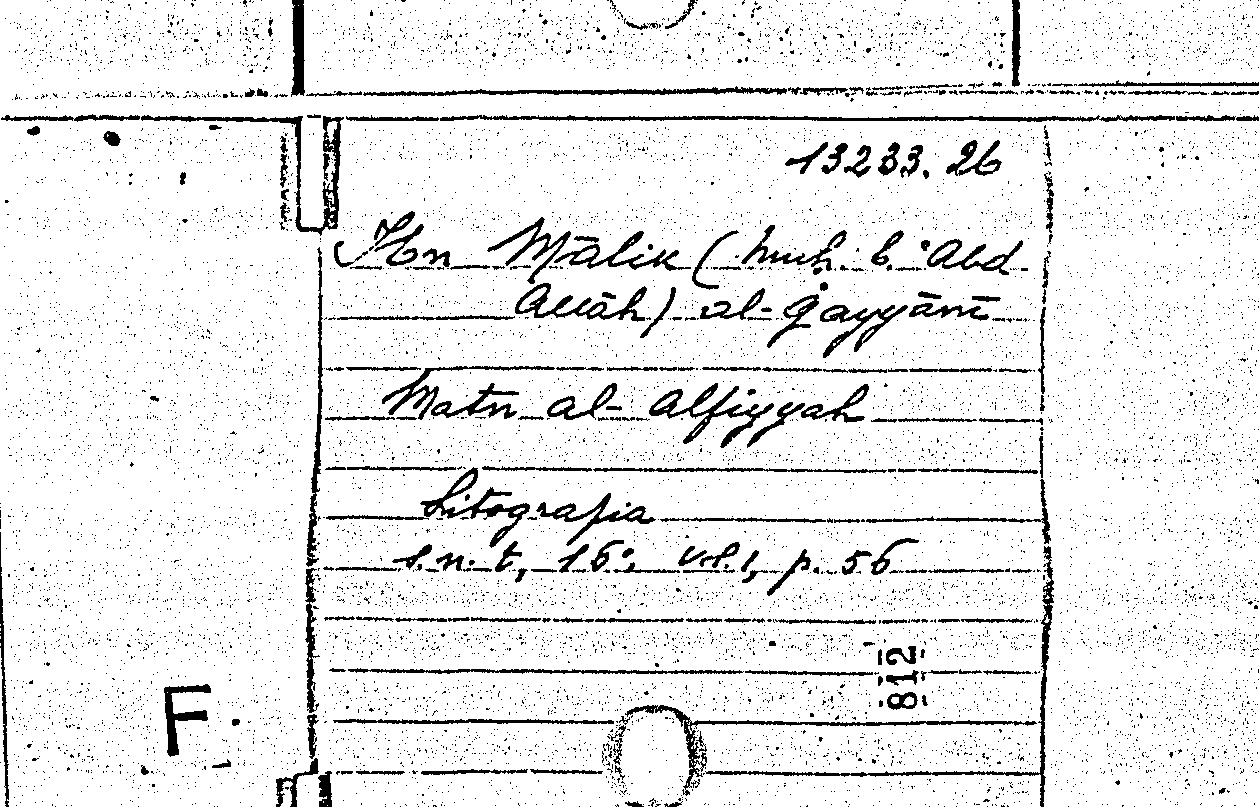 13233.26
Ibn Mālik (Muḥ. b. ʿAbd
Allāh) al-Ġayyānī
Matn al-Alfiyyah
Litografia
s.n.t, 16°, vol. 1, p. 56
812
F.